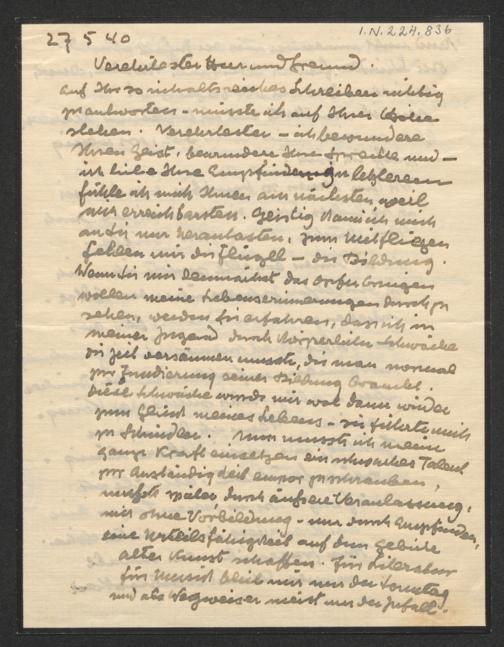 I.N. 224.836
27 5 40
Verehrtester Herr und Freund.
Auf Ihr so inhaltsreiches Schreiben richtig
zu antworten – müsste ich auf Ihrer Höhe
stehen. Verehrtester – ich bewundere
Ihren Geist, bewundere Ihre Sprache und –
ich liebe Ihre Empfindung in letzterem
fühle ich mich Ihnen am nächsten weil
am erreichbarsten. Geistig kann ich mich
an Sie nur herantasten, zum Mitfliegen
fehlen mir die Flügel – die Bildung.
Wenn Sie mir demnächst das Opfer bringen
wollen meine Lebenserinnerungen durch zu
sehen, werden Sie erfahren, dass ich in
meiner Jugend durch körperliche Schwäche
die Zeit versäumen musste, die man normal
zur Fundierung seiner Bildung braucht.
Diese Schwäche wurde mir wol dann wieder
zum Glück meines Lebens – sie führte mich
zu Schindler. Nun musste ich meine
ganze Kraft einsetzen ein schwaches Talent
zur Anständigkeit empor zu schrauben,
musste später durch äussere Veranlassung,
mir ohne Vorbildung – nur durch Empfinden,
eine Urteilsfähigkeit auf dem Gebiete
alter Kunst schaffen. Für Literatur
für Musik blieb mir nur der Sonntag
und als Wegweiser meist nur der Zufall.